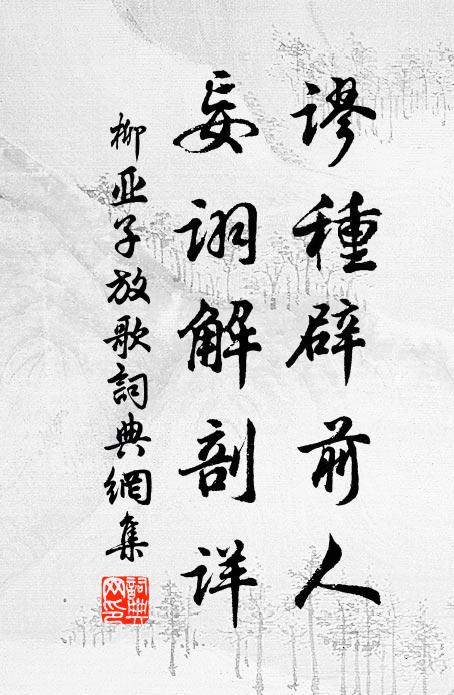 謬種辟前人
妄詡解剖详
柳亚子放歌詞典網集
詞典网